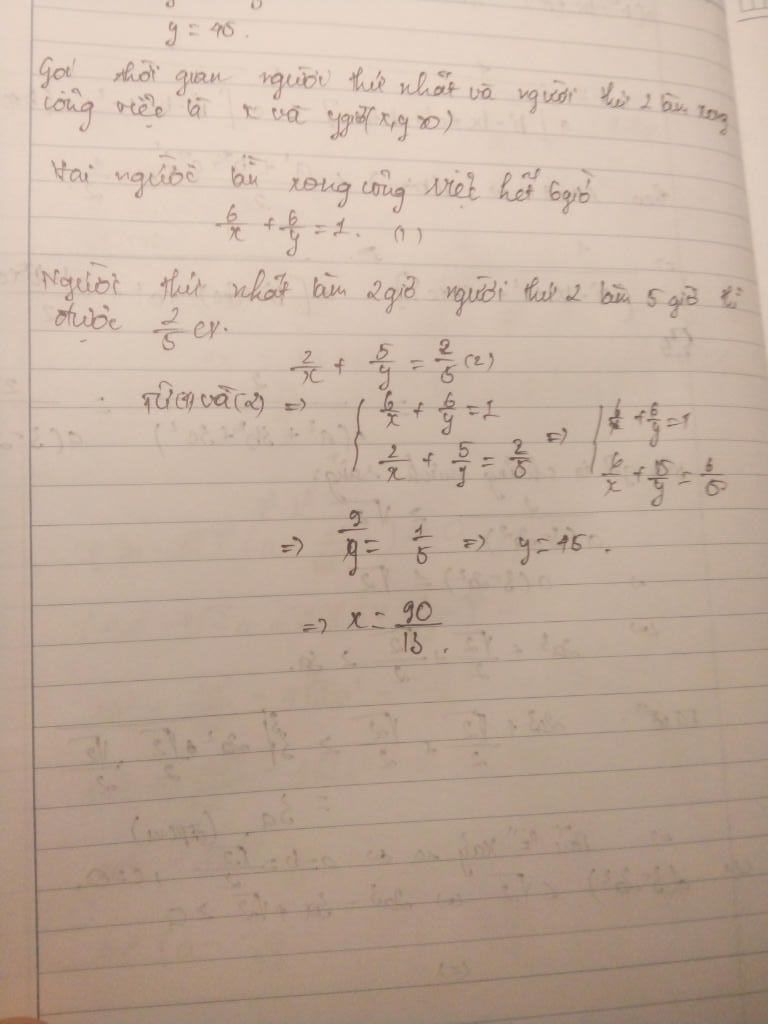 y = 45.
Gọi thời gian người thứ nhất và người thứ 2 làm xong
công việc là x và y giờ (x, y > 0)
Hai người làm xong công việc hết 6 giờ
6/x + 6/y = 1. (1)
Người thứ nhất làm 2 giờ người thứ 2 làm 5 giờ thì
được 2/5 cv.
2/x + 5/y = 2/5 (2)
Từ (1) và (2) => { 6/x + 6/y = 1 ; 2/x + 5/y = 2/5 => { 6/x + 6/y = 1 ; 6/x + 15/y = 6/5
=> 9/y = 1/5 => y = 45.
=> x = 90/13.